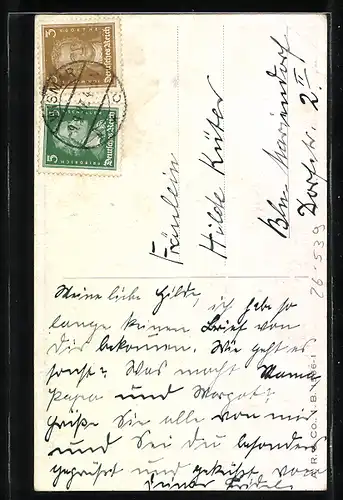 3 GOETHE Deutsches Reich
5 FRIEDRICH Deutsches Reich
Fräulein
Hilde Küter
Bln. Mariendorf
Dorfstr. 2 II
Meine liebe Hilde,
ich habe so
lange keinen Brief von
Dir bekommen. Wie geht es
sonst? Was macht Mama
Papa und Margot?
grüße Sie alle von mir
und Sei du besonders
gegrüßt und geküsst von